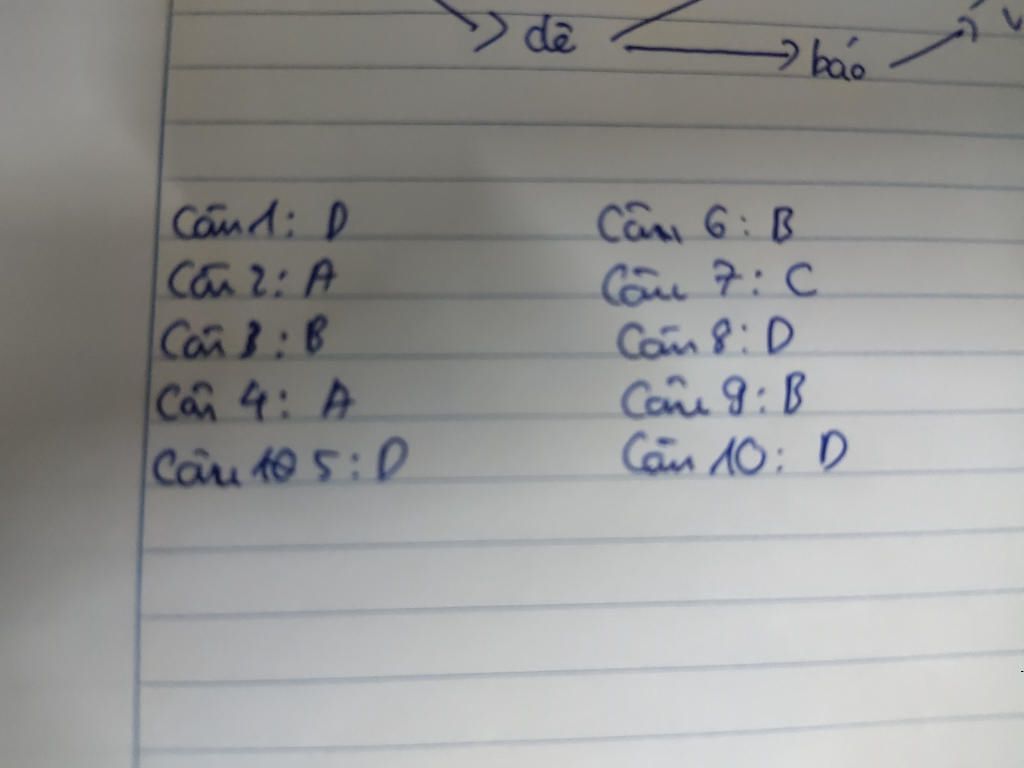 dê báo
Câu 1: D
Câu 2: A
Câu 3: B
Câu 4: A
Câu 5: D
Câu 6: B
Câu 7: C
Câu 8: D
Câu 9: B
Câu 10: D